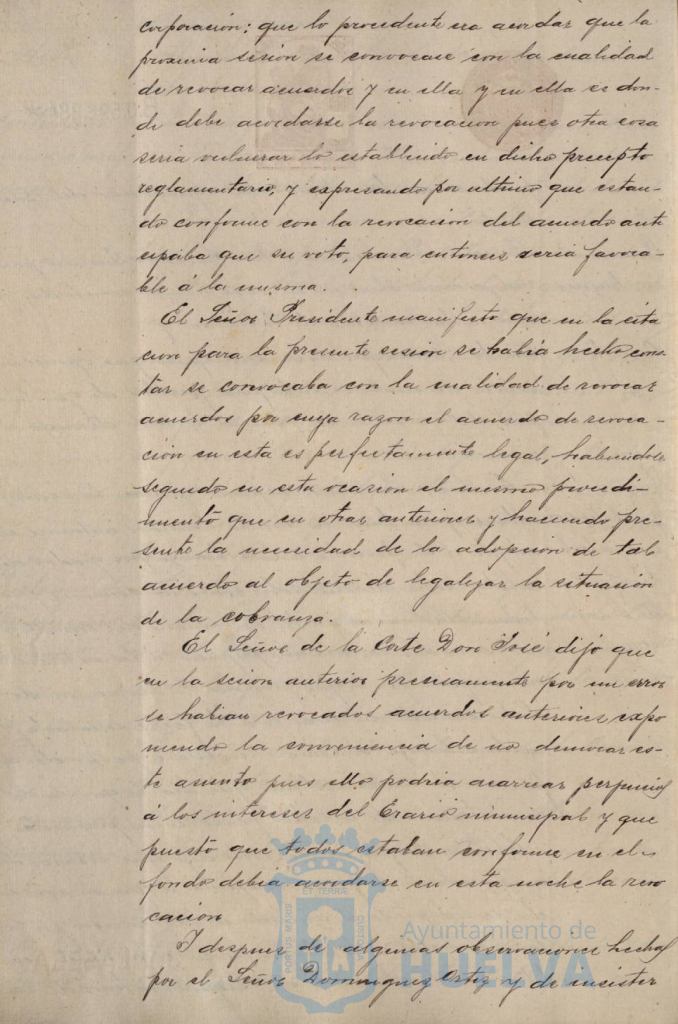 corporación: que lo procedente era acordar que la
proxima sesión se convocase con la cualidad
de revocar acuerdos y en ella y en ella es don-
de debe acordarse la revocacion pues otra cosa
seria vulnerar lo establecido en dicho precepto
reglamentario, y expresando por ultimo que estan-
do conforme con la revocacion del acuerdo anti
cipaba que su voto, para entonces seria favora-
ble á la misma.
El Señor Presidente manifesto que en la cita
cion para la presente sesión se habia hecho cons-
tar se convocaba con la cualidad de revocar
acuerdos por cuya razon el acuerdo de revoca-
ción en esta es perfectamente legal, habiendose
seguido en esta ocasión el mismo procedi-
miento que en otras anteriores y haciendo pre-
sente la necesidad de la adopcion de tal
acuerdo al objeto de legalizar la situación
de la cobranza.
El Señor de la Corte Don José dijo que
en la sesion anterior precisamente por un error
se habian revocados acuerdos anteriores expo
niendo la conveniencia de no demorar es-
te asunto pues ello podria acarrear perjuicios
á los intereses del Erario municipal y que
puesto que todos estaban conforme en el
fondo debia acordarse en esta noche la revo
cacion
Y despues de algunas observaciones hechas
por el Señor Dominguez Ortiz y de insistir
PORTUS MARIS ET TERRAE CUSTODIO
Ayuntamiento de
HUELVA